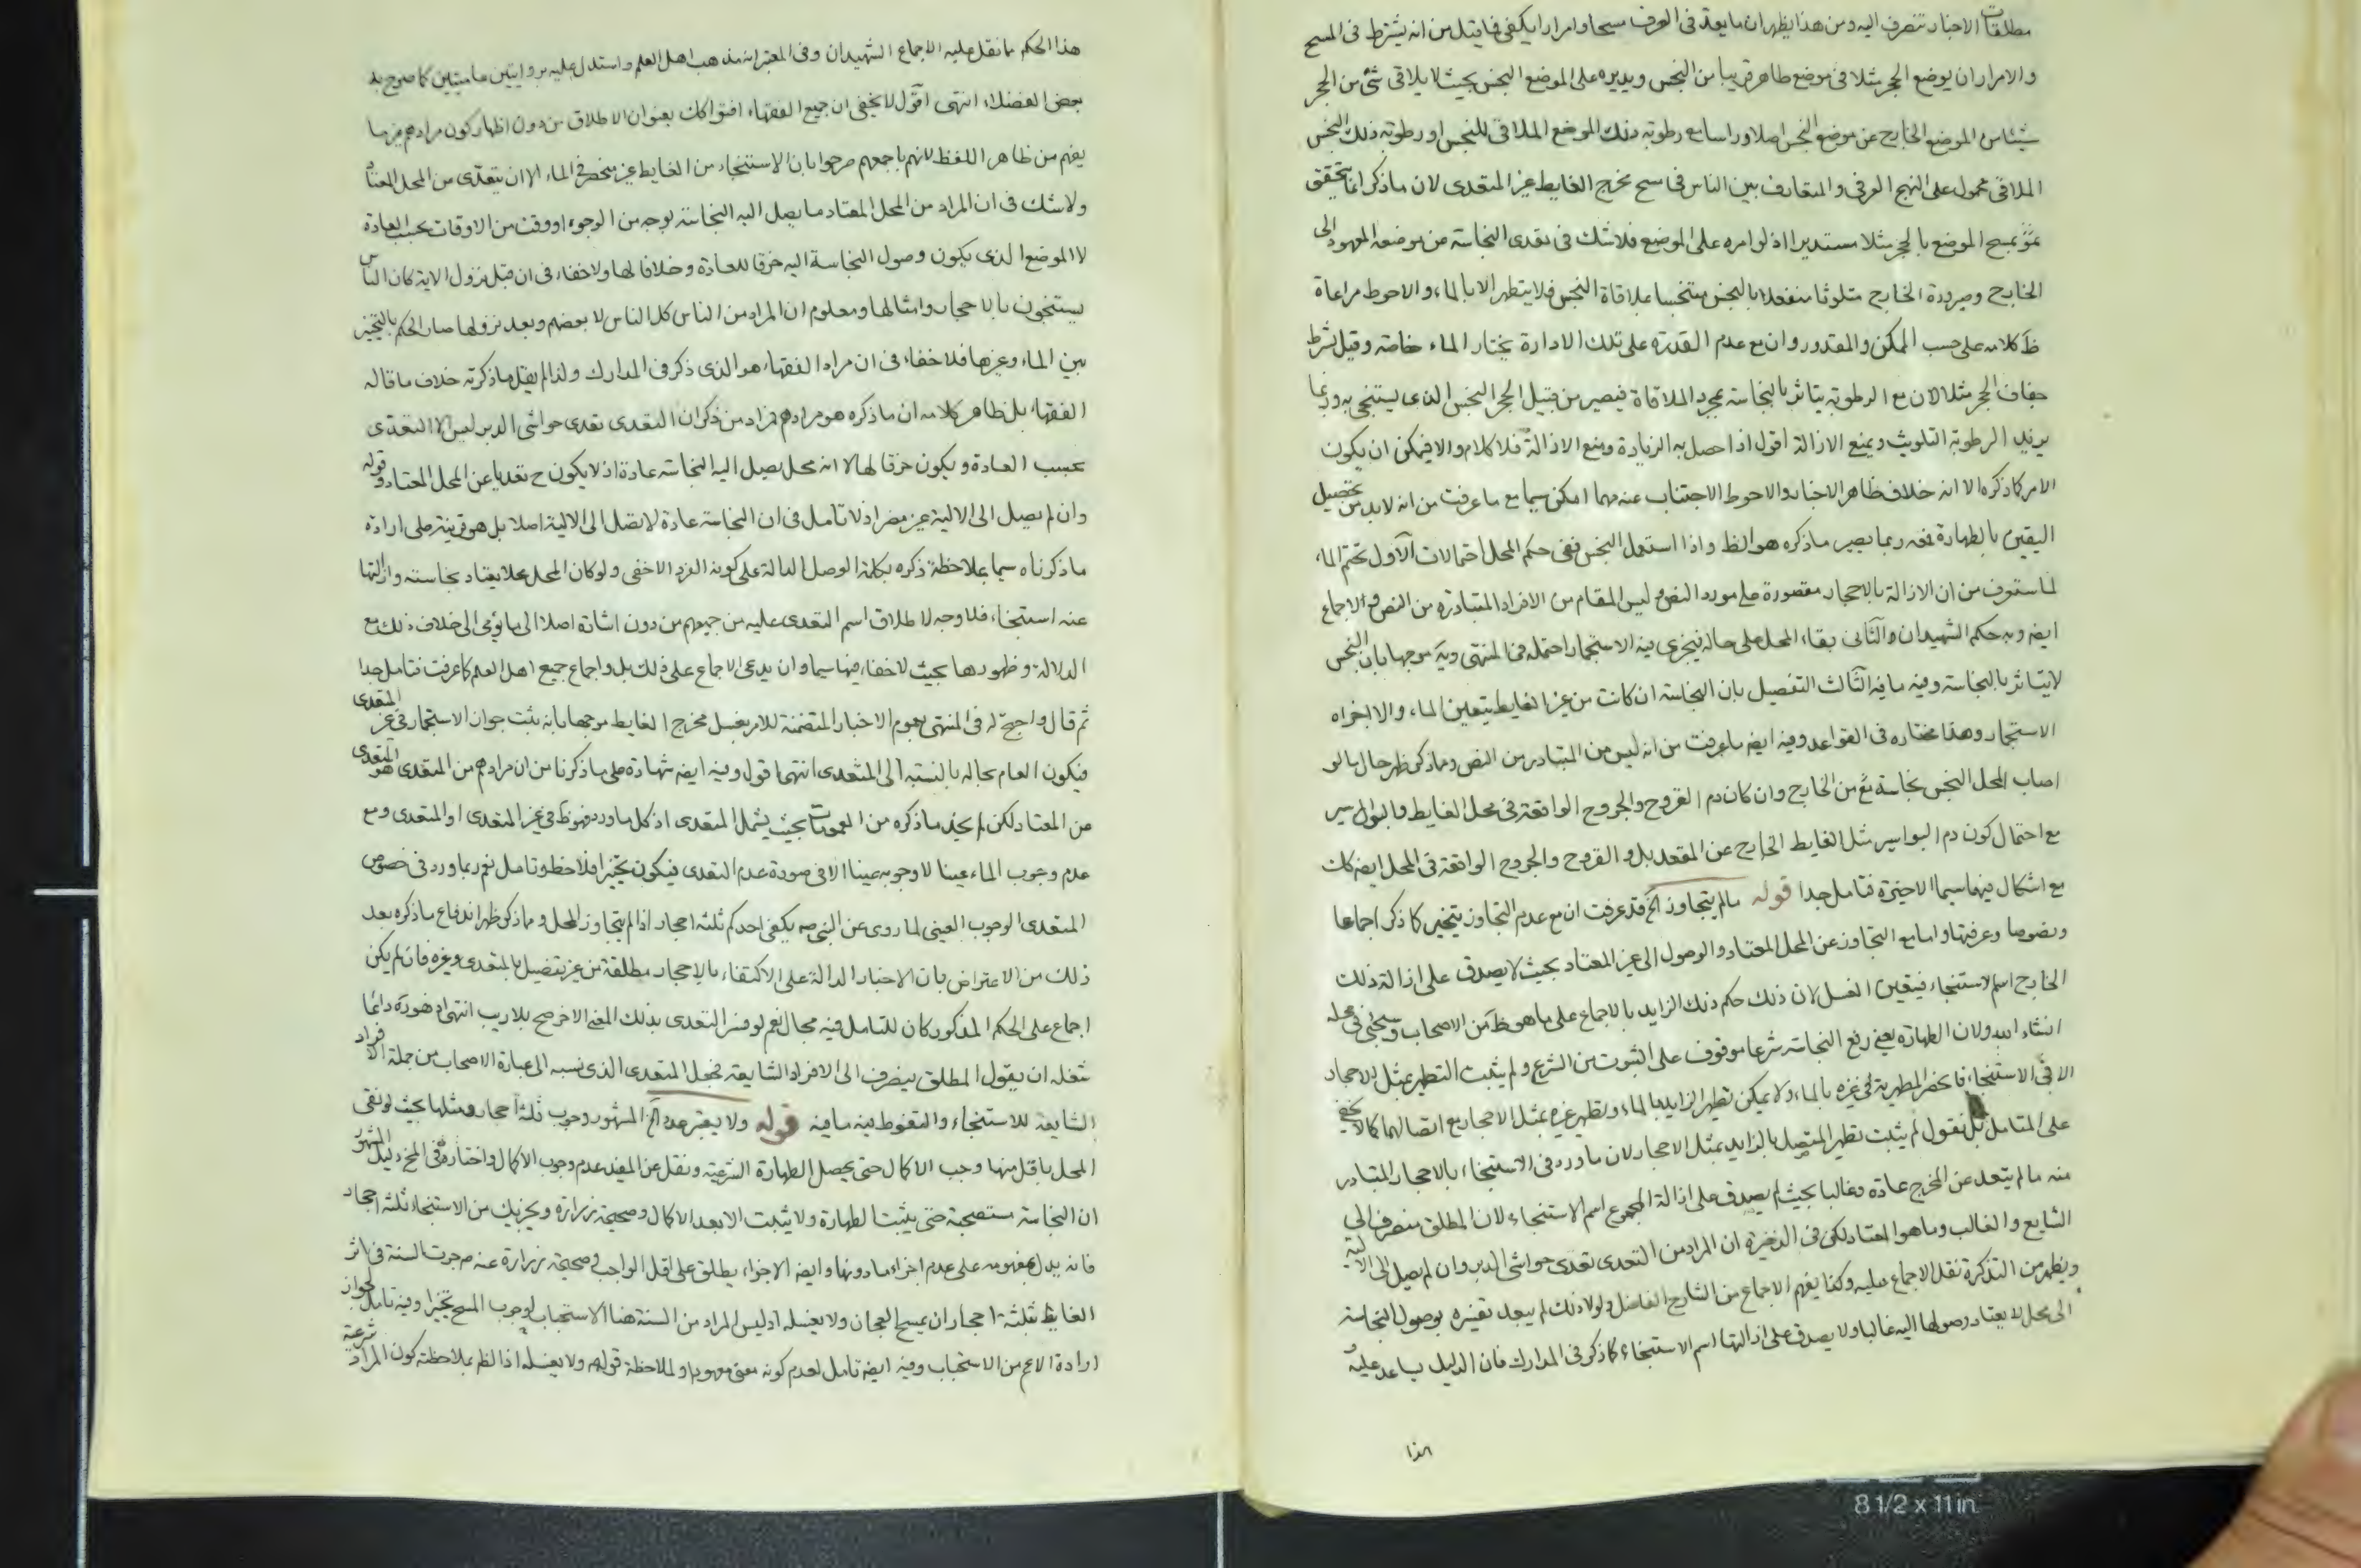 مطلقات الاخبار تنصرف اليه ومن هذا يظهر ان ما يعد فى العرف مسحا وامرارا يكفى فما قيل من انه يشترط فى المسح
والامرار ان يوضع الحجر مثلا فى موضع طاهر قريبا من النجس ويديره على الموضع النجس بحيث لا يلاقى شئ من الحجر
شيئا من الموضع الخارج عن موضع النجس اصلا وراسا مع رطوبة ذلك الموضع الملاقى للنجس او رطوبة ذلك النجس
الملاقى محمول على النهج العرفى والمتعارف بين الناس فى مسح مخرج الغايط غير المتعدى لان ما ذكر انما يتحقق
بمسح الموضع بالحجر مثلا مستديرا اذ لو امره على الموضع فلا شك فى تعدى النجاسة من موضعه المعهود الى
الخارج وصيرورة الخارج متلوثا منفعلا بالنجس متنجسا بملاقاة النجس فلا يتطهر الا بالماء والاحوط مراعاة
ظ كلامه على حسب الممكن والمقدور وان مع عدم القدرة على تلك الادارة يختار الماء خاصة وقيل بشرط
جفاف الحجر مثلا لان مع الرطوبة يتاثر بالنجاسة بمجرد الملاقاة فيصير من قبيل الحجر النجس الذى يستنجى به وربما
يزيد الرطوبة التلويث ويمنع الازالة اقول اذا حصل به الزيادة ومنع الازالة فلا كلام والا فيمكن ان يكون
الامر كما ذكره الا انه خلاف ظاهر الاخبار والاحوط الاجتناب عنه مهما امكن سيما مع ما عرفت من انه لابد من تحصيل
اليقين بالطهارة نعم ربما يصير ما ذكره هو الظ واذا استعمل النجس ففى حكم المحل احتمالات الاول تحتم الماء
لما ستعرف من ان الازالة بالاحجار مقصورة على مورد النص وليس المقام من الافراد المتبادرة من النص والاجماع
ايضه وبه حكم الشهيدان والثانى بقاء المحل على حاله فيجزى فيه الاستجمار احتمله فى المنتهى موجها بان النجس
لا يتاثر بالنجاسة وفيه ما فيه الثالث التفصيل بان النجاسة ان كانت من غير الغايط يتعين الماء والا اجزاه
الاستجمار وهذا مختاره فى القواعد وفيه ايضه ما عرفت من انه ليس من المتبادر من النص ومما ذكر ظهر حال ما لو
اصاب المحل النجس نجاسة من الخارج وان كان دم القروح والجروح الواقعة فى محل الغايط والبواسير
مع احتمال كون دم البواسير مثل الغايط الخارج عن المقعد بل والقروح والجروح الواقعة فى المحل ايضه كك
مع اشكال فيها سيما الاخيرة فتامل جدا قوله مالم يتجاوز الخ قد عرفت ان مع عدم التجاوز يتخير كما ذكر اجماعا
ونصوصا وعرفتها واما مع التجاوز عن المحل المعتاد والوصول الى غير المعتاد بحيث لا يصدق على ازالة ذلك
الخارج اسم الاستنجاء فيتعين الغسل لان ذلك حكم ذلك الزايد بالاجماع على ما هو ظ من الاصحاب وسيجئ فى محله
انشاء الله ولان الطهارة يعنى رفع النجاسة شرعا موقوف على الثبوت من الشرع ولم يثبت التطهير بمثل الاحجار
الا فى الاستنجاء فانحصر المطهرية فى غيره بالماء ولا يمكن تطهير الزايد بالماء وتطهير غيره بمثل الاحجار مع اتصالهما كما لا يخفى
على المتامل بل نقول لم يثبت تطهير المتصل بالزايد بمثل الاحجار لان ما ورد فى الاستنجاء بالاحجار المتبادر
منه ما لم يتعد عن المخرج عادة وغالبا بحيث لم يصدق على ازالة المجموع اسم الاستنجاء لان المطلق منصرف الى
الشايع والغالب وما هو المعتاد لكن فى الذخيرة ان المراد من التعدى تعدى حواشى الدبر وان لم يصل الى الالية
ويظهر من التذكرة نقل الاجماع عليه وكذا يفهم الاجماع من الشارح الفاضل ولولا ذلك لم يبعد تفسيره بوصول النجاسة
الى محل لا يعتاد وصولها اليه غالبا ولا يصدق على ازالتها اسم الاستنجاء كما ذكر فى المدارك فان الدليل يساعد عليه
هذا
هذا الحكم ما نقل عليه الاجماع الشهيدان وفى المعتبر انه مذهب اهل العلم واستدل عليه بروايتين عاميتين كما صرح به
بعض الفضلاء انتهى اقول لا يخفى ان جميع الفقهاء افتوا كك بعنوان الاطلاق من دون اظهار كون مرادهم غير ما
يفهم من ظاهر اللفظ لانهم باجمعهم صرحوا بان الاستنجاء من الغايط غير منحصر فى الماء الا ان يتعدى من المحل المعتاد
ولا شك فى ان المراد من المحل المعتاد ما يصل اليه النجاسة بوجه من الوجوه او وقت من الاوقات بحسب العادة
لا الموضع الذى يكون وصول النجاسة اليه خرقا للعادة وخلافا لها ولا خفاء فى ان قبل نزول الاية كان الناس
يستنجون بالاحجار وامثالها ومعلوم ان المراد من الناس كل الناس لا بعضهم وبعد نزولها صار الحكم بالتخيير
بين الماء وغيرها فلا خفاء فى ان مراد الفقهاء هو الذى ذكر فى المدارك ولذا لم يقل ما ذكرته خلاف ما قاله
الفقهاء بل ظاهر كلامه ان ما ذكره هو مرادهم فمراد من ذكر ان التعدى تعدى حواشى الدبر ليس الا التعدى
بحسب العادة ويكون خرقا لها لا انه محل يصل اليه النجاسة عادة اذ لا يكون ح تعديا عن المحل المعتاد وقوله
وان لم يصل الى الالية غير مضر اذ لا تامل فى ان النجاسة عادة لا تصل الى الالية اصلا بل هو قرينة على ارادة
ما ذكرناه سيما بملاحظة ذكره بكلمة الوصل الدالة على كونه الفرد الاخفى ولو كان المحل محلا يعتاد نجاسته وازالتها
عنه استنجاء فلا وجه لاطلاق اسم التعدى عليه من جميعهم من دون اشارة اصلا الى ما يؤمى الى خلاف ذلك مع
الدلالة وظهورها بحيث لا خفاء فيها سيما وان يدعى الاجماع على ذلك بل واجماع جميع اهل العلم كما عرفت فتامل جدا
ثم قال واحتج له فى المنتهى بعموم الاخبار المتضمنة للامر بغسل مخرج الغايط موجها بانه يثبت جواز الاستجمار فى غير المتعدى
فيكون العام بحاله بالنسبة الى المتعدى انتهى اقول وفيه ايضه شهادة على ما ذكرنا من ان مرادهم من المتعدى هو المتعدى
عن المعتاد لكن لم نجد ما ذكره من العمومات بحيث يشمل المتعدى اذ كل ما ورد فهو ظ فى غير المتعدى او المتعدى ومع
عدم وجوب الماء عينا لا وجوبه عينا الا فى صورة عدم التعدى فيكون تخييرا فلاحظ وتامل نعم ربما ورد فى خصوص
المتعدى الوجوب العينى لما روى عن النبى صه يكفى احدكم ثلثة احجار اذا لم يتجاوز المحل ومما ذكر ظهر اندفاع ما ذكره بعد
ذلك من الاعتراض بان الاخبار الدالة على الاكتفاء بالاحجار مطلقة من غير تفصيل بالمتعدى وغيره فان لم يكن
اجماع على الحكم المذكور كان للتامل فيه مجال نعم لو فسر التعدى بذلك المعنى الاخر صح بلا ريب انتهى
شغله ان يقول المطلق ينصرف الى الافراد الشايعة فجعل المتعدى الذى نسبه الى عبارة الاصحاب من جملة الافراد
الشايعة للاستنجاء والتغوط فيه ما فيه قوله ولا يعتبر عدد الخ المشهور وجوب ثلثة احجار ومثلها بحيث لو نقى
المحل باقل منها وجب الاكمال حتى يحصل الطهارة الشرعية ونقل عن المفيد عدم وجوب الاكمال واختاره فى المخ دليل المشهور
ان النجاسة مستصحبة حتى يثبت الطهارة ولا يثبت الا بعد الاكمال وصحيحة زرارة ويجزيك من الاستنجاء ثلثة احجار
فانه يدل بمفهومه على عدم اجزاء ما دونها وايضه الاجزاء يطلق على اقل الواجب وصحيحة زرارة عنه ع جرت السنة فى اثر
الغايط بثلثة احجار ان يمسح العجان ولا يغسله اذ ليس المراد من السنة هنا الاستحباب لوجوب المسح تخييرا وفيه تامل لجواز
ارادة الاعم من الاستحباب وفيه ايضه تامل لعدم كونه معنى معهودا ولملاحظة قوله ع ولا يغسله اذ الظ بملاحظته كون المراد شرعية